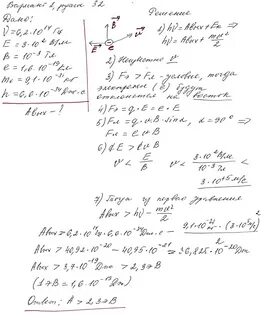 Вариант 2, рубеж 32
Дано: Решение
ν = 6,2·10¹⁴ Гц
E = 3·10² В/м
B = 10⁻³ Тл
e = 1,6·10⁻¹⁹ Кл
m₀ = 9,1·10⁻³¹ кг
h = 6,6·10⁻³⁴ Дж·с
Aвых - ?
B
E
e
v
1) hν = Aвых + Eк ⇒
hν = Aвых + mv²/2
2) Неизвестно v
3) Fэ > Fл - условие, тогда
электроны (e) будут
отклоняться на восток
4) Fэ = q·E = e·E
5) Fл = qvB sinα, α = 90° ⇒
Fл = evB
6) eE > evB
v < E/B v < 3·10² В/м / 10⁻³ Тл <
3·10⁵ м/с
7) Тогда из первого уравнения
Aвых > hν - mv²/2
Aвых > 6,2·10¹⁴ Гц·6,6·10⁻³⁴ Дж·с - 9,1·10⁻³¹ кг·(3·10⁵)²/2
Aвых > 40,92·10⁻²⁰ - 40,95·10⁻²¹ > 36,825·10⁻²⁰ Дж
Aвых > 3,7·10⁻¹⁹ Дж > 2,3 эВ
(1 эВ = 1,6·10⁻¹⁹ Дж)
Ответ: A > 2,3 эВ